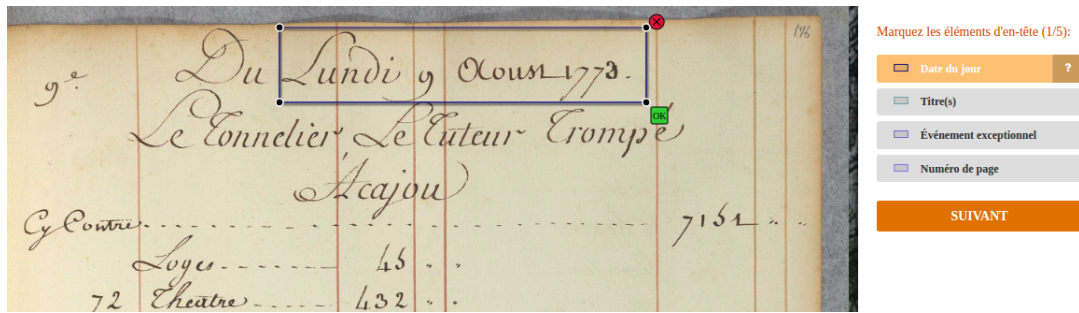 176
Du Lundi 9 Aoust 1773.
9.e
Le Tonnelier, Le Tuteur Trompé
Acajou
Cy Contre 7151 " "
Loges 45 " "
72 Theatre 432 " "
OK
Marquez les éléments d'en-tête (1/5):
Date du jour ?
Titre(s)
Événement exceptionnel
Numéro de page
SUIVANT